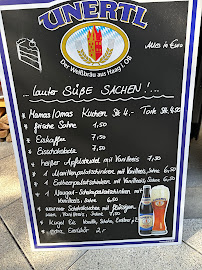 UNERTL
Der Weißbräu aus Haag i. OB
Alles in Euro
...lauter SÜßE SACHEN!...
* Mamas/Omas Kuchen Stk 4,- Torte Stk 4,50
* frische Sahne 1,50
* Eiskaffee 7,50
* Eisschokolade 7,50
* heißer Apfelstrudel mit Vanilleeis 7,50
* 2 Marillenpalatschinken mit Vanilleeis, Sahne
* 2 Erdbeerpalatschinken mit Vanilleeis, Sahne
* 2 Nougat-Schokopalatschinken mit
Vanilleeis, Sahne
mit
Sahne
* Kugel Eis Vanille, Schoko, Erdbeer
extra Eierlikör 2,-